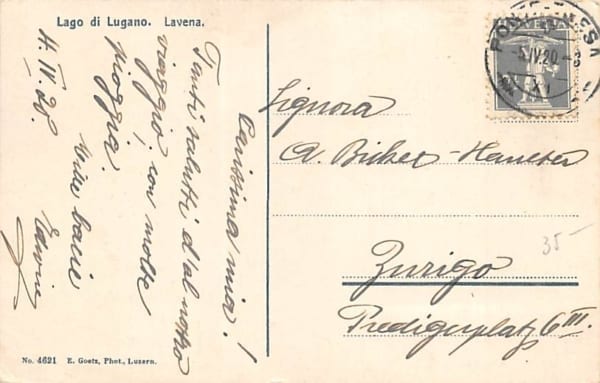 Lago di Lugano. Lavena.
4. IV. 20.
Carissima mia!
Tanti saluti d'al nostro
viaggio, con molta
pioggia.
Mille bacie
Edwin
HELVETIA
PONTE TRESA
-5.IV.20.-8
XI
Signora
A. Bicher-Haneter
Zurigo
Predigerplatz 6 III.
35-
No. 4621 E. Goetz, Phot., Luzern.